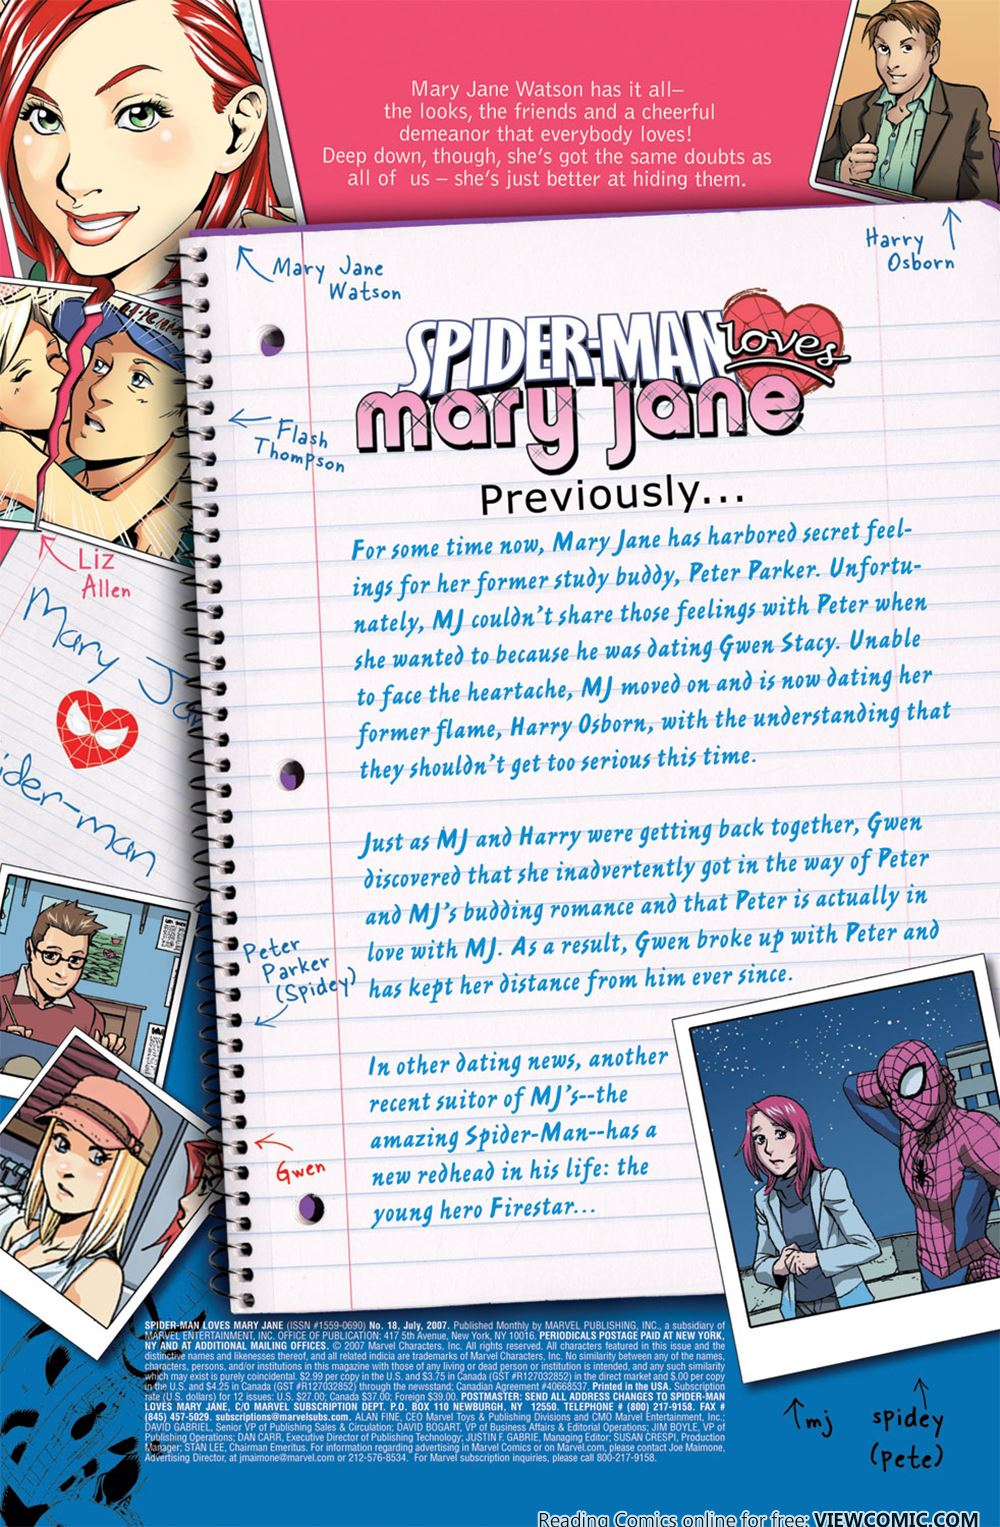 Mary Jane Watson has it all–
the looks, the friends and a cheerful
demeanor that everybody loves!
Deep down, though, she's got the same doubts as
all of us – she's just better at hiding them.
Mary Jane
Watson
Harry
Osborn
SPIDER-MAN loves
mary jane
Flash
Thompson
Previously...
For some time now, Mary Jane has harbored secret feel-
ings for her former study buddy, Peter Parker. Unfortu-
nately, MJ couldn't share those feelings with Peter when
she wanted to because he was dating Gwen Stacy. Unable
to face the heartache, MJ moved on and is now dating her
former flame, Harry Osborn, with the understanding that
they shouldn't get too serious this time.
Liz
Allen
Mary Ja
ider-man
Just as MJ and Harry were getting back together, Gwen
discovered that she inadvertently got in the way of Peter
and MJ's budding romance and that Peter is actually in
love with MJ. As a result, Gwen broke up with Peter and
has kept her distance from him ever since.
Peter
Parker
(Spidey)
In other dating news, another
recent suitor of MJ's--the
amazing Spider-Man--has a
new redhead in his life: the
young hero Firestar...
Gwen
mj
spidey
(pete)
SPIDER-MAN LOVES MARY JANE (ISSN #1559-0690) No. 18, July, 2007. Published Monthly by MARVEL PUBLISHING, INC., a subsidiary of
MARVEL ENTERTAINMENT, INC. OFFICE OF PUBLICATION: 417 5th Avenue, New York, NY 10016. PERIODICALS POSTAGE PAID AT NEW YORK,
NY AND AT ADDITIONAL MAILING OFFICES. © 2007 Marvel Characters, Inc. All rights reserved. All characters featured in this issue and the
distinctive names and likenesses thereof, and all related indicia are trademarks of Marvel Characters, Inc. No similarity between any of the names,
characters, persons, and/or institutions in this magazine with those of any living or dead person or institution is intended, and any such similarity
which may exist is purely coincidental. $2.99 per copy in the U.S. and $3.75 in Canada (GST #R127032852) in the direct market and $.00 per copy
in the U.S. and $4.25 in Canada (GST #R127032852) through the newsstand; Canadian Agreement #40668537. Printed in the USA. Subscription
rate (U.S. dollars) for 12 issues: U.S. $27.00; Canada $37.00; Foreign $39.00. POSTMASTER: SEND ALL ADDRESS CHANGES TO SPIDER-MAN
LOVES MARY JANE, C/O MARVEL SUBSCRIPTION DEPT. P.O. BOX 110 NEWBURGH, NY 12550. TELEPHONE # (800) 217-9158. FAX #
(845) 457-5029. subscriptions@marvelsubs.com. ALAN FINE, CEO Marvel Toys & Publishing Divisions and CMO Marvel Entertainment, Inc.;
DAVID GABRIEL, Senior VP of Publishing Sales & Circulation; DAVID BOGART, VP of Business Affairs & Editorial Operations; JIM BOYLE, VP of
Publishing Operations; DAN CARR, Executive Director of Publishing Technology; JUSTIN F. GABRIE, Managing Editor; SUSAN CRESPI, Production
Manager; STAN LEE, Chairman Emeritus. For information regarding advertising in Marvel Comics or on Marvel.com, please contact Joe Maimone,
Advertising Director, at jmaimone@marvel.com or 212-576-8534. For Marvel subscription inquiries, please call 800-217-9158.
Reading Comics online for free: VIEWCOMIC.COM